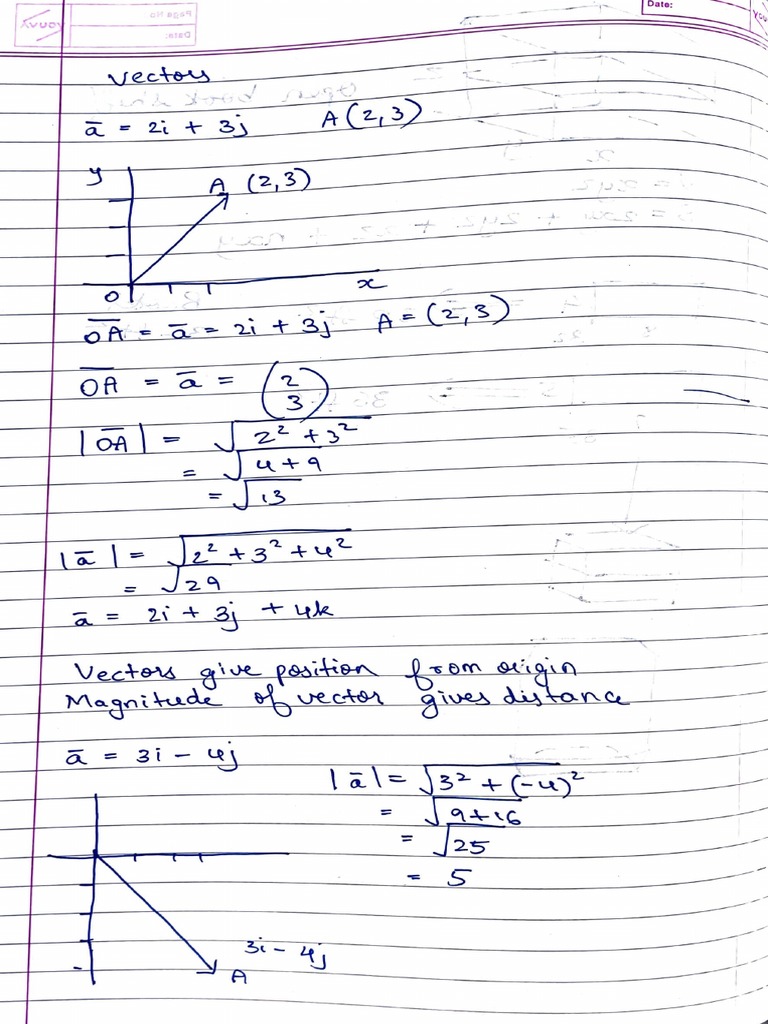 Date:
Vectors
a̅ = 2i + 3j A(2,3)
y
A (2,3)
O x
O̅A̅ = a̅ = 2i + 3j A = (2,3)
O̅A̅ = a̅ = (2 3)
|O̅A̅| = √2² + 3²
= √4 + 9
= √13
|a̅| = √2² + 3² + 4²
= √29
a̅ = 2i + 3j + 4k
Vectors give position from origin
Magnitude of vector gives distance
a̅ = 3i - 4j
|a̅| = √3² + (-4)²
= √9+16
= √25
= 5
3i - 4j
A